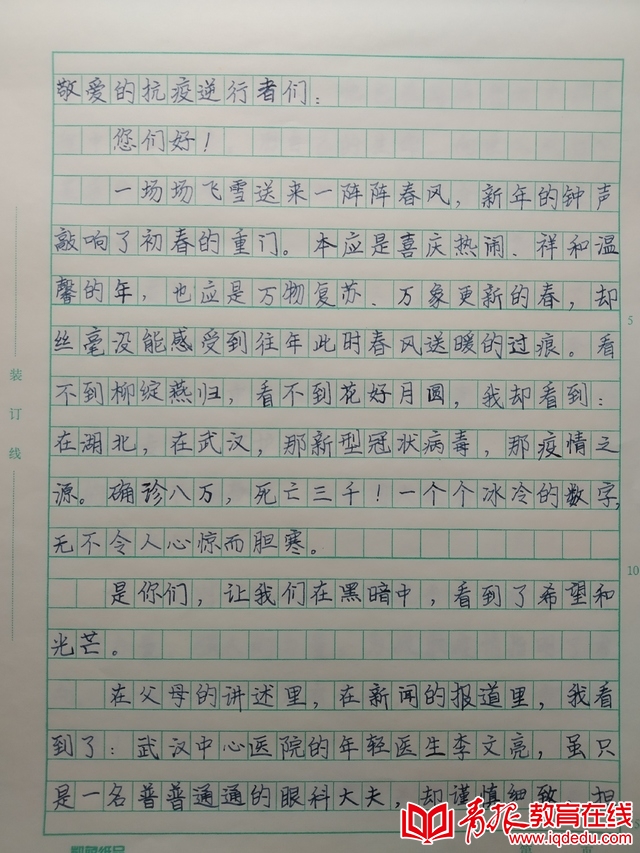 敬爱的抗疫逆行者们:
您们好!
一场场飞雪送来一阵阵春风,新年的钟声
敲响了初春的重门。本应是喜庆热闹、祥和温
馨的年,也应是万物复苏、万象更新的春,却
丝毫没能感受到往年此时春风送暖的过痕。看
不到柳绽燕归,看不到花好月圆,我却看到:
在湖北,在武汉,那新型冠状病毒,那疫情之
源。确珍八万,死亡三千!一个个冰冷的数字,
无不令人心惊而胆寒。
是你们,让我们在黑暗中,看到了希望和
光芒。
在父母的讲述里,在新闻的报道里,我看
到了:武汉中心医院的年轻医生李文亮,虽只
是一名普普通通的眼科大夫,却谨慎细致、担
装订线
5
10
青报教育在线
www.iqdedu.com